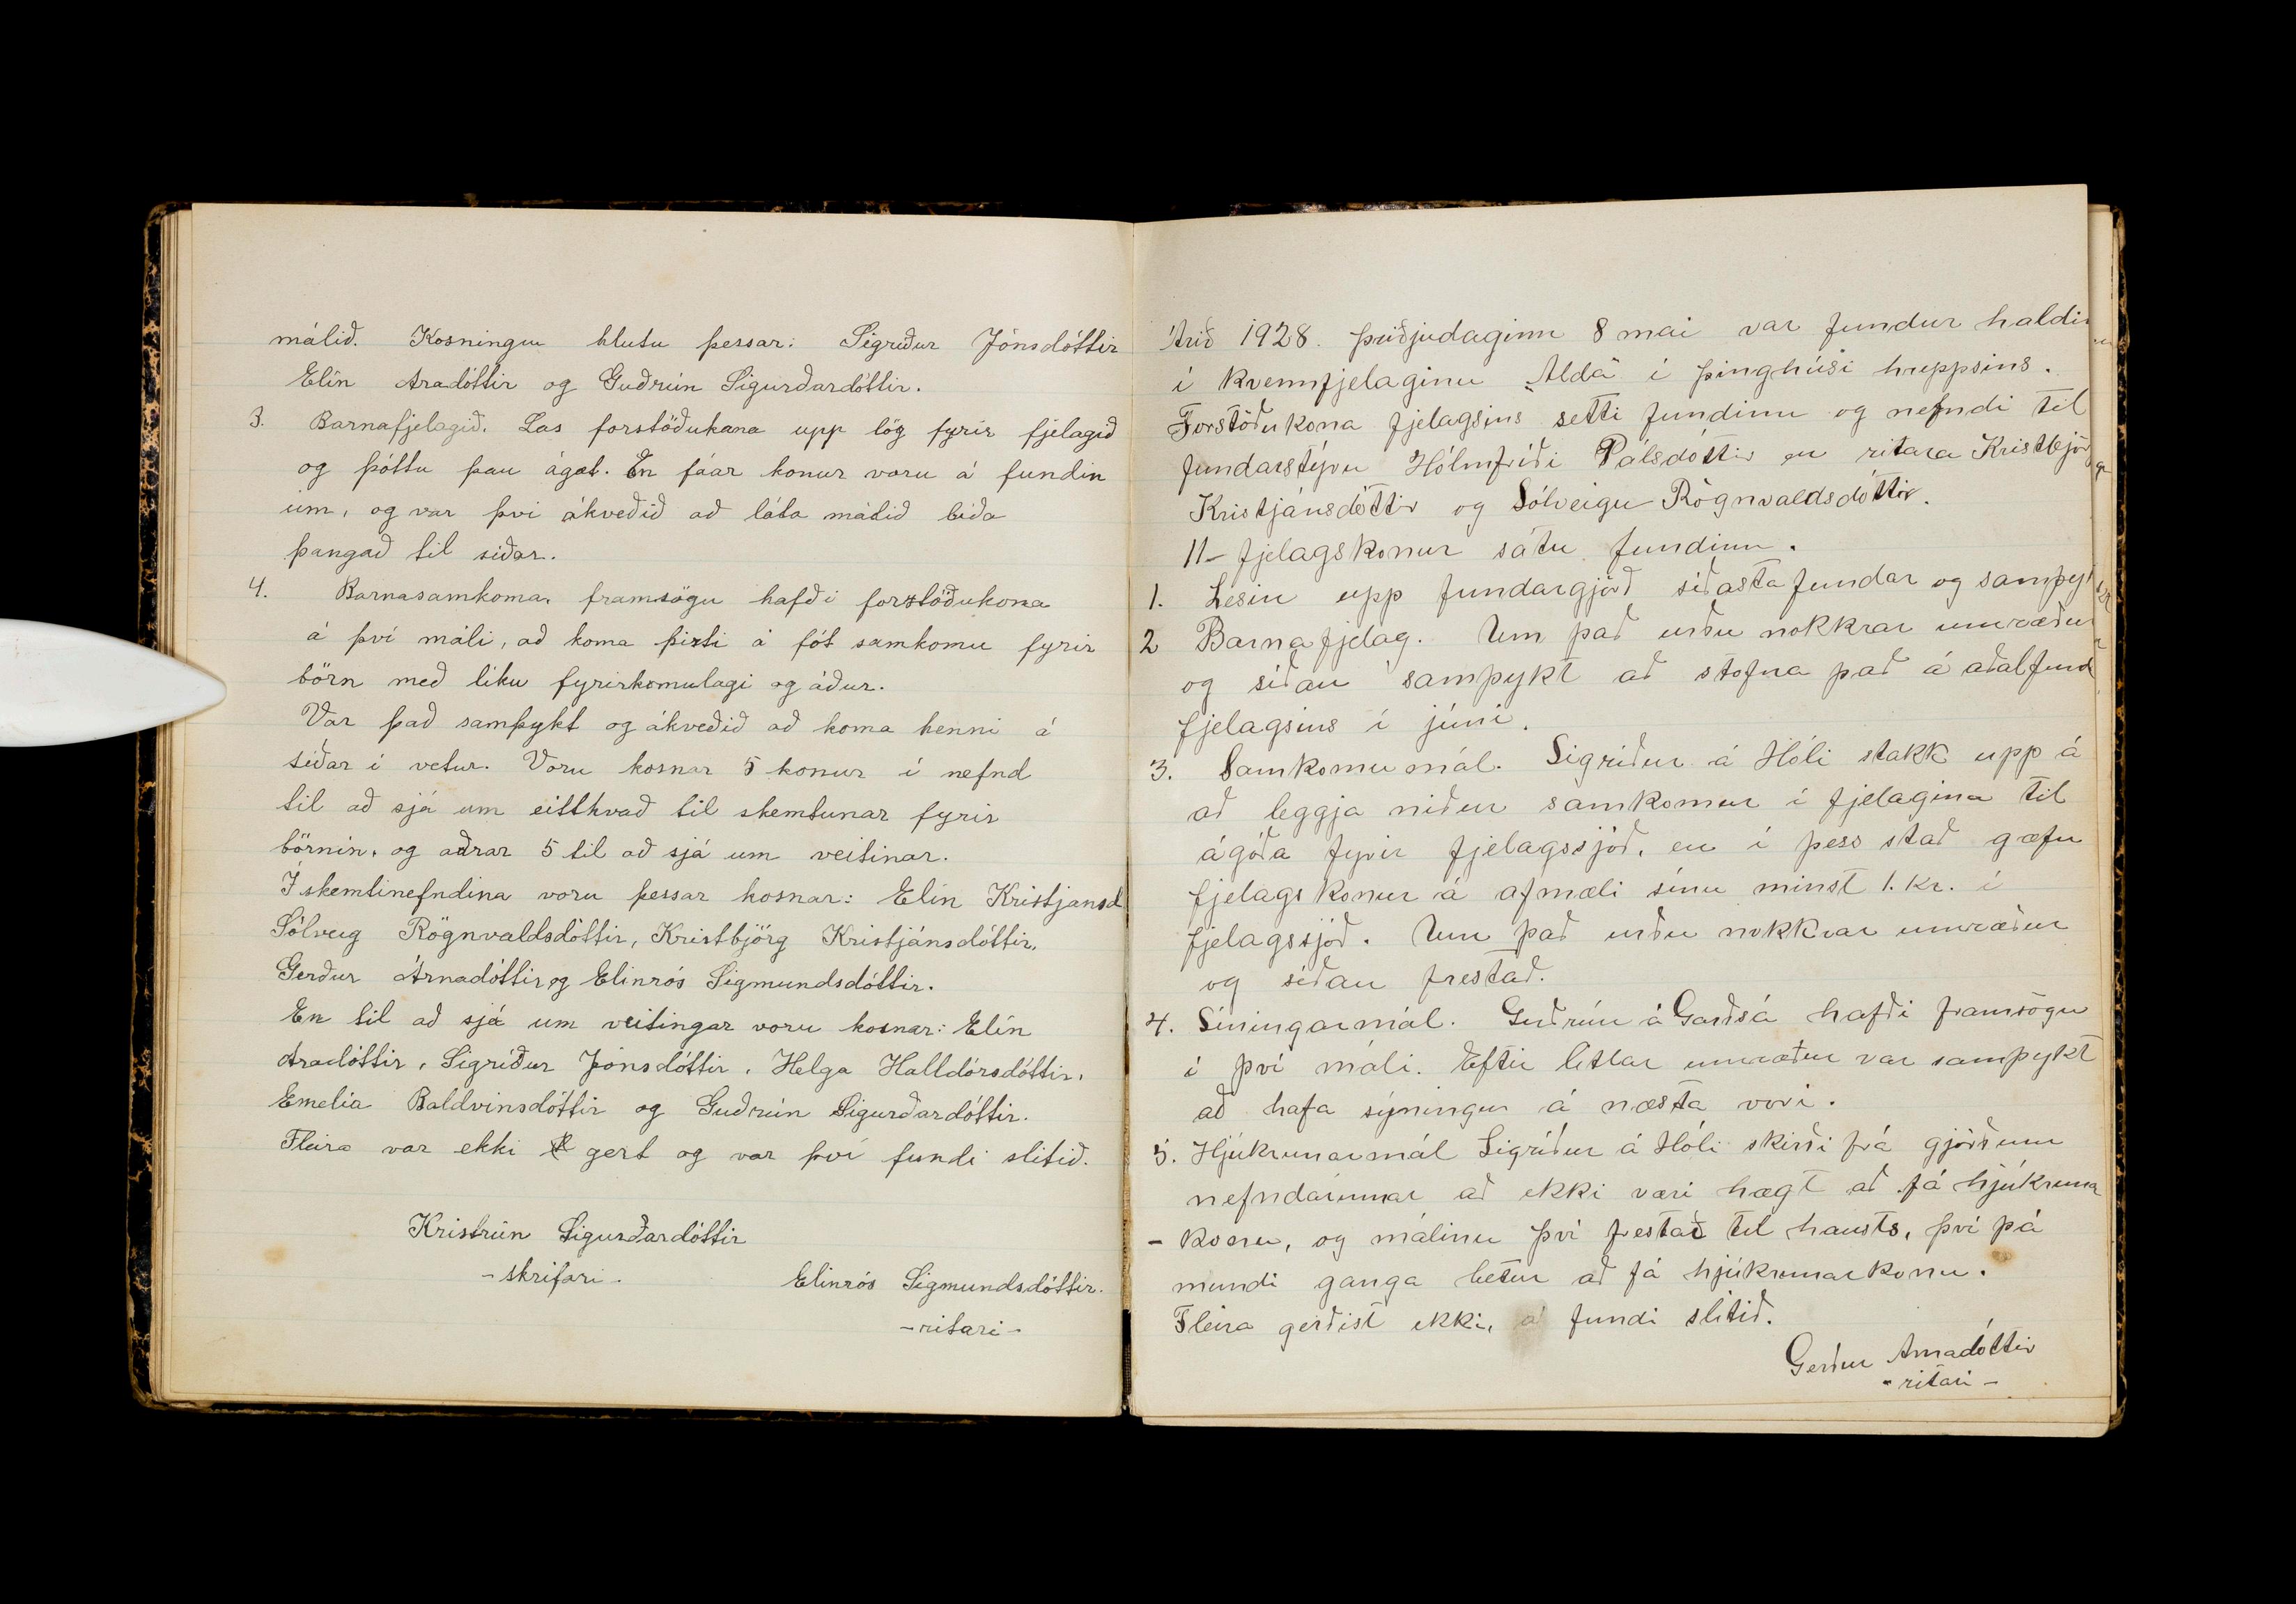 málið. Kosningu hlutu þessar: Sigríður Jónsdóttir
Elín Aradóttir og Guðrún Sigurðardóttir.
3. Barnafjelagið. Las forstöðukona upp lög fyrir fjelagið
og þóttu þau ágæt. En fáar konur voru á fundin
um, og var því ákveðið að láta málið bíða
þangað til síðar.
4. Barnasamkoma, framsögu hafði forstöðukona
á því máli, að koma þirti á fót samkomu fyrir
börn með líku fyrirkomulagi og áður.
Var það samþykt og ákveðið að koma henni á
síðar í vetur. Voru kosnar 5 konur í nefnd
til að sjá um eitthvað til skemtunar fyrir
börnin, og aðrar 5 til að sjá um veitinar.
Í skemtinefndina voru þessar kosnar: Elín Kristjansd
Sólveig Rögnvaldsdóttir, Kristbjörg Kristjánsdóttir,
Gerður Árnadóttir og Elinrós Sigmundsdóttir.
En til að sjá um veitingar voru kosnar: Elín
Aradóttir, Sigríður Jónsdóttir, Helga Halldórsdóttir,
Emelía Baldvinsdóttir og Guðrún Sigurðardóttir.
Fleira var ekki gert og var því fundi slitið.
Kristrún Sigurðardóttir
- skrifari -
Elinrós Sigmundsdóttir.
- ritari -
Árið 1928. þriðjudaginn 8 mai var fundur haldin
í kvennfjelaginu "Aldá" í þinghúsi hreppsins.
Forstöðukona fjelagsins setti fundinn og nefndi til
fundarstýru Hólmfríði Pálsdóttir en ritara Kristbjör
Kristjánsdóttir og Sólveigu Rögnvaldsdóttir.
11 - fjelagskonur sátu fundinn.
1. Lesin upp fundargjörð síðasta fundar og samþy
2 Barnafjelag. Um það urðu nokkrar umræður
og síðan samþykt að stofna það á aðalfund
fjelagsins í júní.
3. Samkomumál. Sigríður á Hóli stakk upp á
að leggja niður samkomur í fjelaginu til
ágóða fyrir fjelagssjóð, en í þess stað gæfu
fjelagskonur á afmæli sínu minst 1. kr. í
fjelagssjóð. Um það urðu nokkrar umræður
og síðan frestað.
4. Síningarmál. Guðrún á Garðsá hafði framsögu
í því máli. Eftir litlar umræður var samþykt
að hafa sýningu á næsta vori.
5. Hjúkrunarmál Sigríður á Hóli skírði frá gjörðum
nefndarinnar að ekki væri hægt að fá hjúkruna
- konu, og málinu því frestað til hausts, því þá
mundi ganga betur að fá hjúkrunarkonu.
Fleira gerðist ekki, fundi slitið.
Gerður Árnadóttir
- ritari -